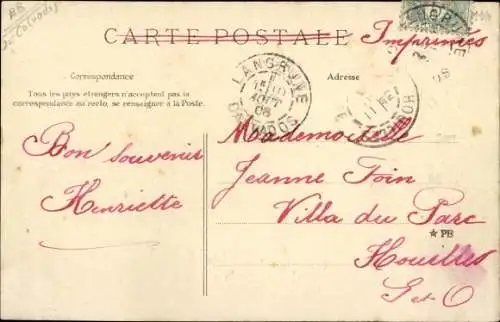 CARTE POSTALE
Imprimés
Correspondance
Adresse
Tous les pays étrangers n'acceptent pas la
correspondance au recto, se renseigner à la Poste.
LANGRUNE
AOUT
CALVADOS
Bon souvenir
Henriette
Mademoiselle
Jeanne Foin
Villa du Parc
★ PB
Houilles
S et O